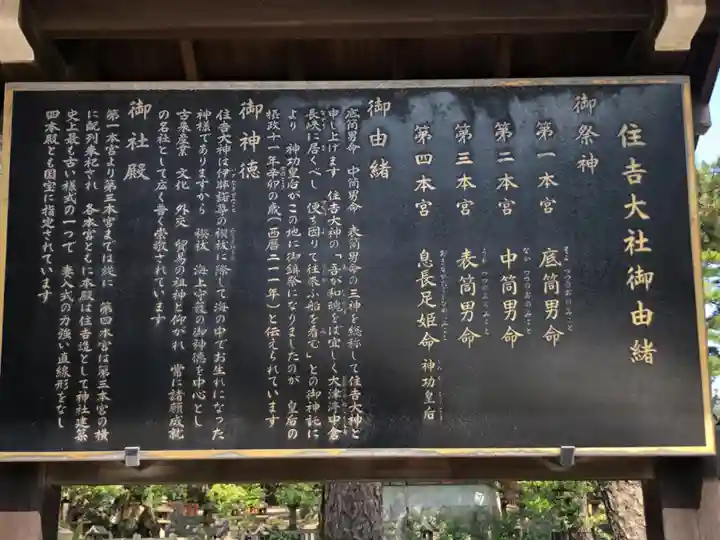 住吉大社御由緒
御祭神
第一本宮 底筒男命
第二本宮 中筒男命
第三本宮 表筒男命
第四本宮 息長足姫命 神功皇后
御由緒
底筒男命 中筒男命 表筒男命の三神を総称して住吉大神と
申し上げます 住吉大神の「吾が和魂をば宜しく大津渟中倉
長峡に居くべし 便ち因りて往来ふ船を看む」との御神託に
より 神功皇后がこの地に御鎮祭になりましたのが 皇后の
摂政十一年辛卯の歳(西暦二一一年)と伝えられています
御神徳
住吉大神は伊邪諾尊の禊祓に際して海の中でお生れになった
神様でありますから 禊祓 海上守護の御神徳を中心とし
古来産業 文化 外交 貿易の祖神と仰がれ 常に諸願成就
の名社として広く普く崇敬されています
御社殿
第一本宮より第三本宮までは縦に 第四本宮は第三本宮の横
に配列奉祀され 各本宮ともに本殿は住吉造として神社建築
史上最も古い様式の一つで 妻入式の力強い直線形をなし
四本殿とも国宝に指定されています